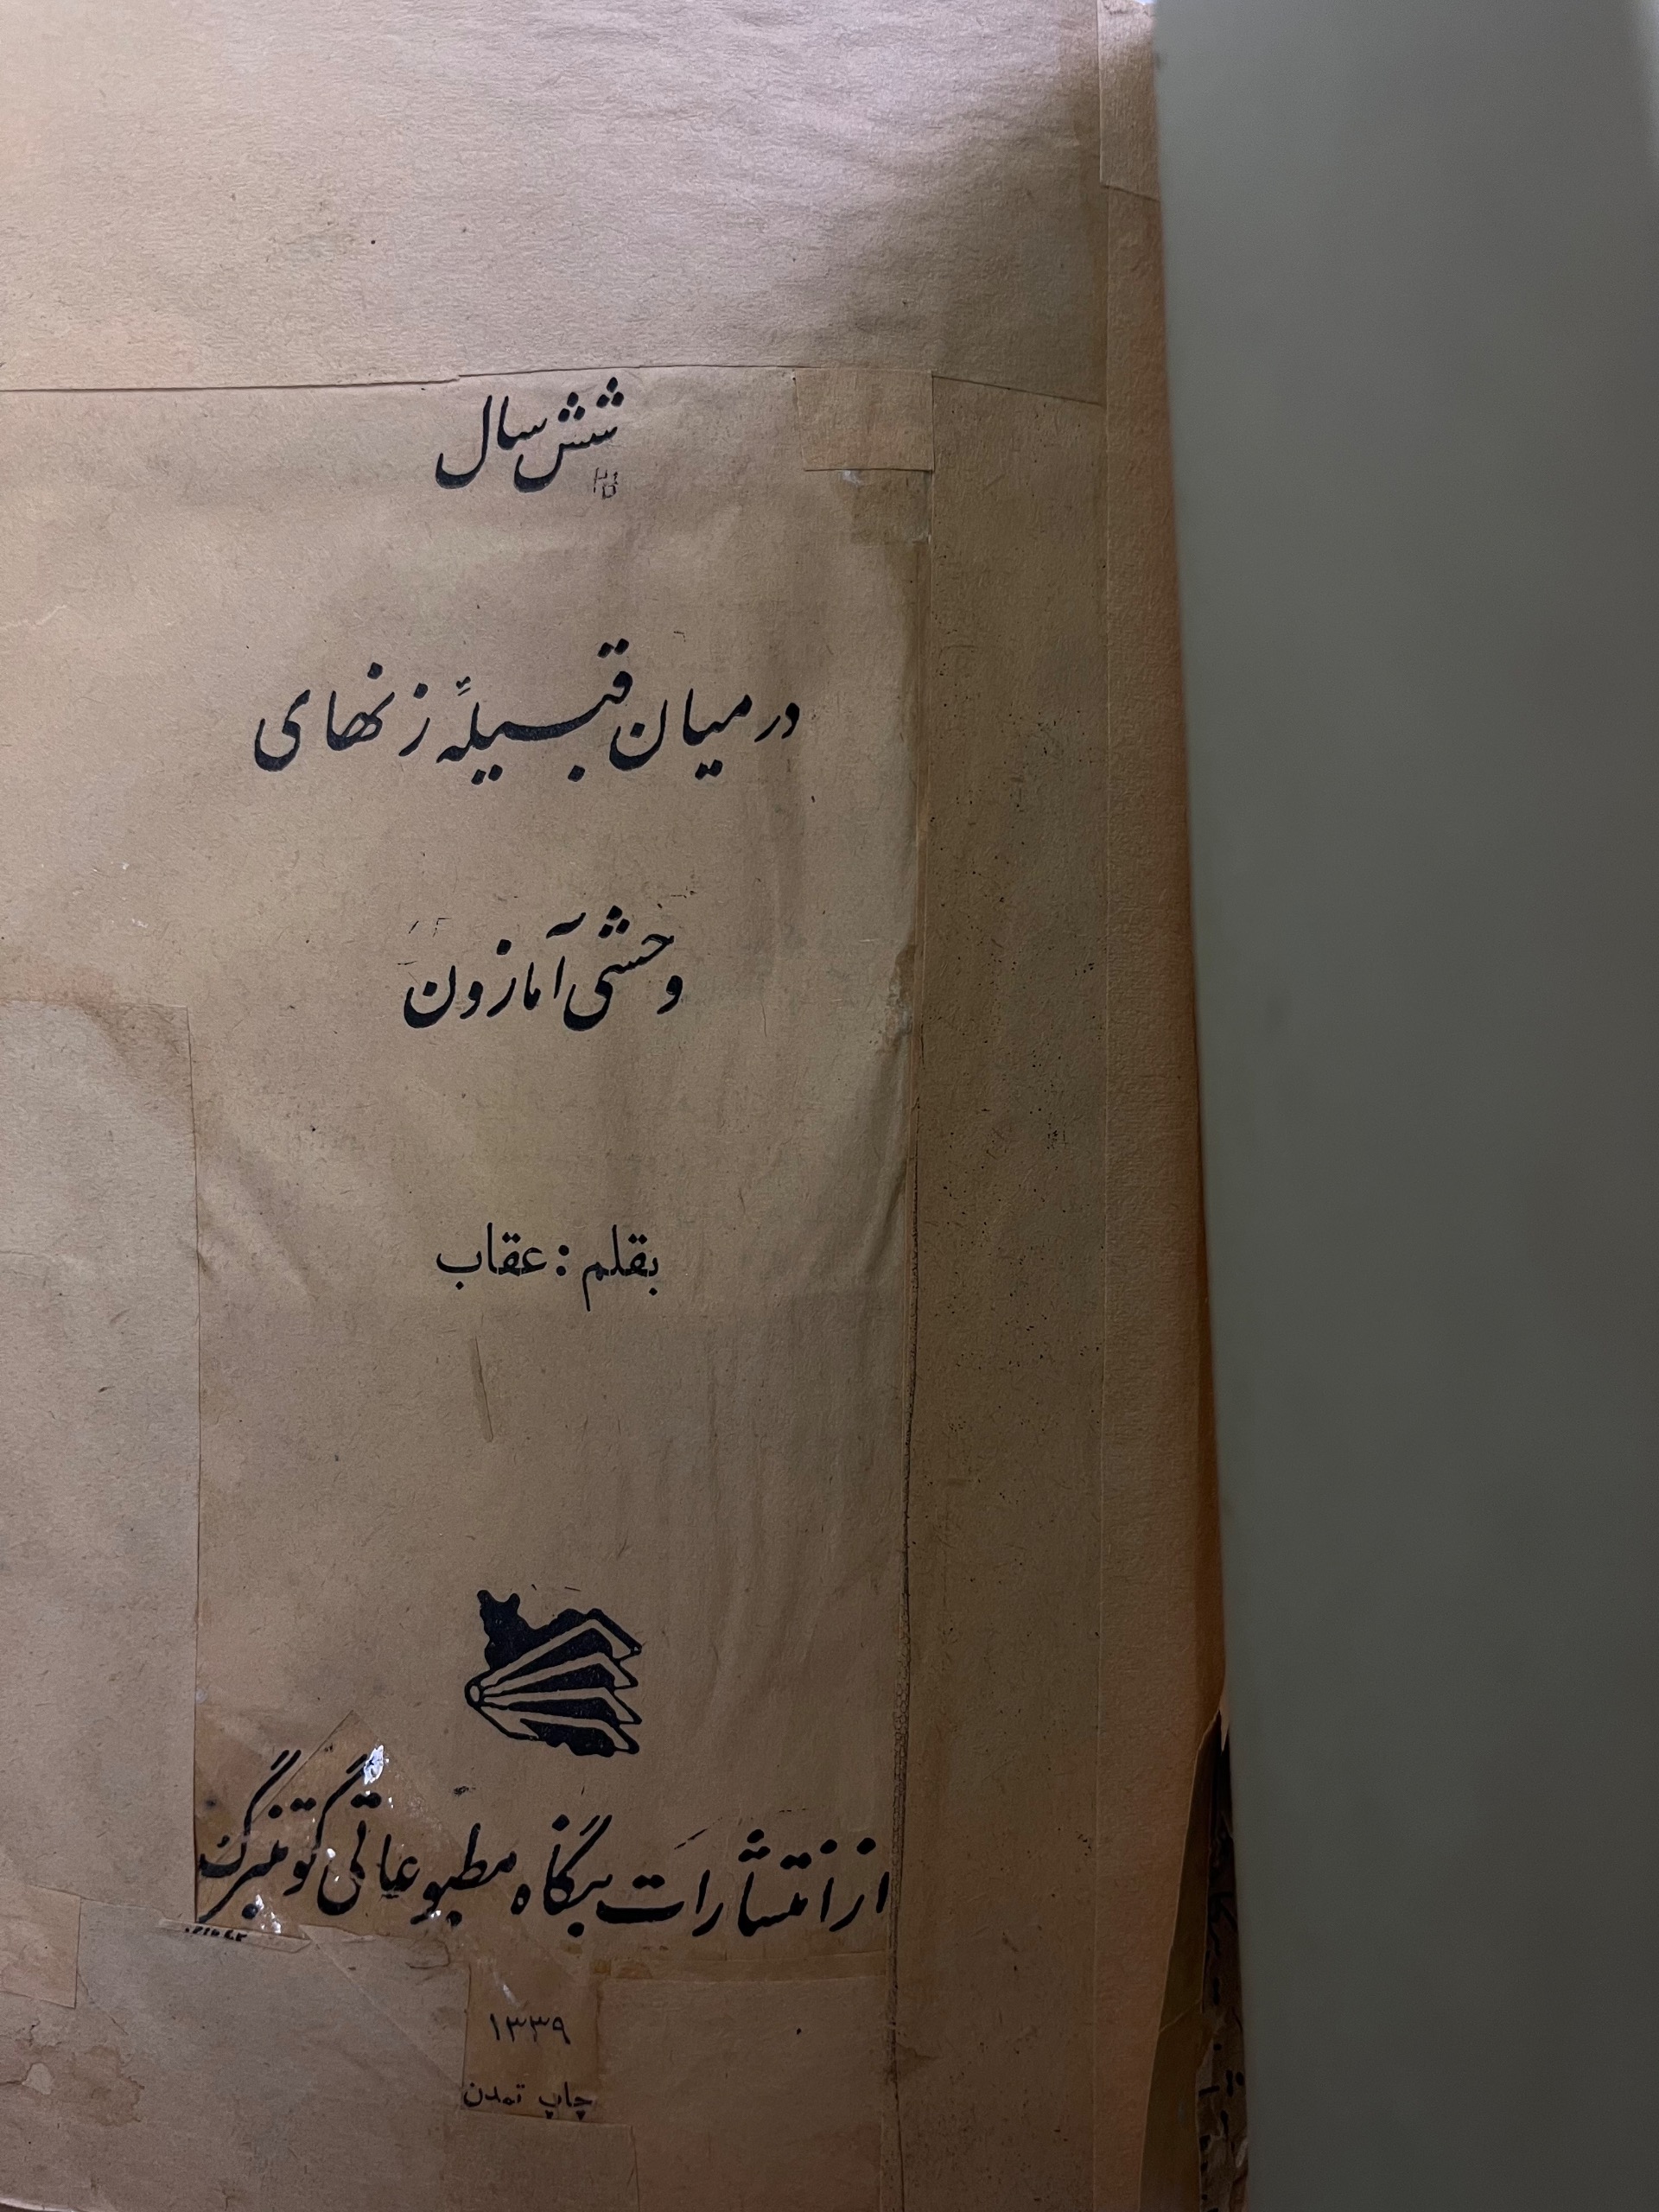 شش سال
در میان قبیلهٔ زنهای
وحشی آمازون
بقلم : عقاب
از انتشارات بنگاه مطبوعاتی گوتنبرگ
۱۳۳۹
چاپ تمدن